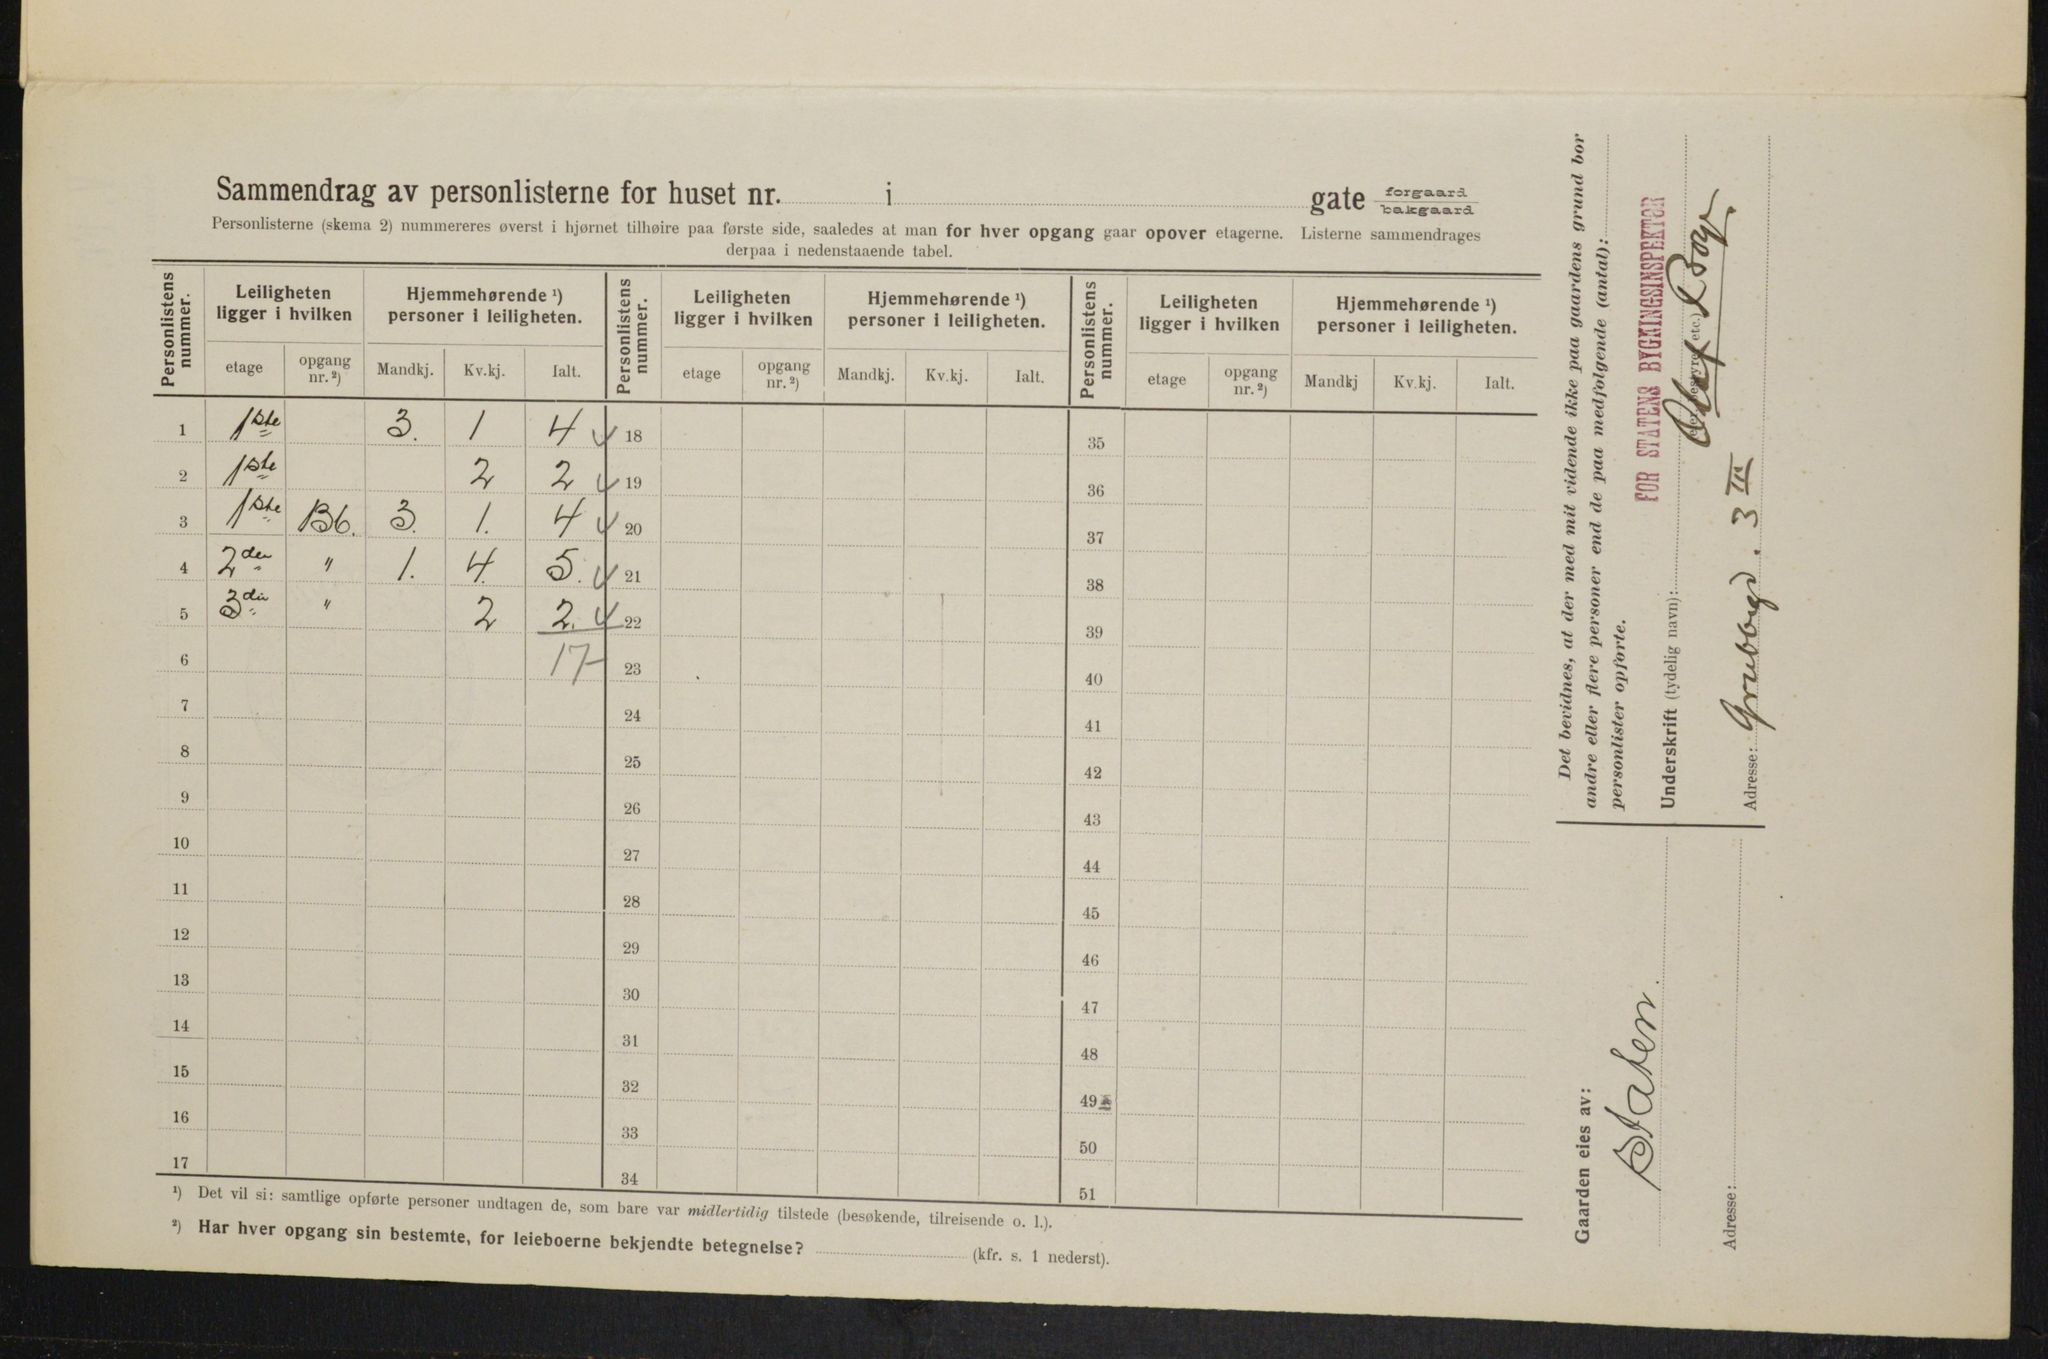 Sammendrag av personlisterne for huset nr. i gate forgaard
bakgaard
Personlisterne (skema 2) nummereres øverst i hjørnet tilhøire paa første side, saaledes at man for hver opgang gaar opover etagerne. Listerne sammendrages
derpaa i nedenstaaende tabel.
Personlistens nummer. Leiligheten ligger i hvilken Hjemmehørende ¹) personer i leiligheten. Personlistens nummer. Leiligheten ligger i hvilken Hjemmehørende ¹) personer i leiligheten. Personlistens nummer. Leiligheten ligger i hvilken Hjemmehørende ¹) personer i leiligheten.
etage opgang nr. ²) Mandkj. Kv.kj. Ialt. etage opgang nr. ²) Mandkj. Kv.kj. Ialt. etage opgang nr. ²) Mandkj Kv.kj. Ialt.
1 1ste 3. 1 4 18 35
2 1ste 2 2 19 36
3 1ste B6. 3. 1. 4 20 37
4 2den " 1. 4. 5. 21 38
5 3die " 2 2. 22 39
6 17 23 40
7 24 41
8 25 42
9 26 43
10 27 44
11 28 45
12 29 46
13 30 47
14 31 48
15 32 49
16 33 50
17 34 51
¹) Det vil si: samtlige opførte personer undtagen de, som bare var midlertidig tilstede (besøkende, tilreisende o. l.).
²) Har hver opgang sin bestemte, for leieboerne bekjendte betegnelse? (kfr. s. 1 nederst).
Det bevidnes, at der med mit vidende ikke paa gaardens grund bor
andre eller flere personer end de paa medfølgende (antal):
personlister opførte.
FOR STATENS BYGNINGSINSPEKTØR
Underskrift (tydelig navn): Olaf
(eier, bestyrer etc.)
Adresse: Grubbegd. 3 III
Gaarden eies av:
Staten.
Adresse: